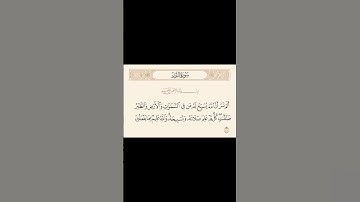 سورة النور
أَلَمْ تَرَ أَنَّ ٱللَّهَ يُسَبِّحُ لَهُۥ مَن فِى ٱلسَّمَٰوَٰتِ وَٱلْأَرْضِ وَٱلطَّيْرُ
صَٰٓفَّٰتٍ كُلٌّ قَدْ عَلِمَ صَلَاتَهُۥ وَتَسْبِيحَهُۥ وَٱللَّهُ عَلِيمٌۢ بِمَا يَفْعَلُونَ